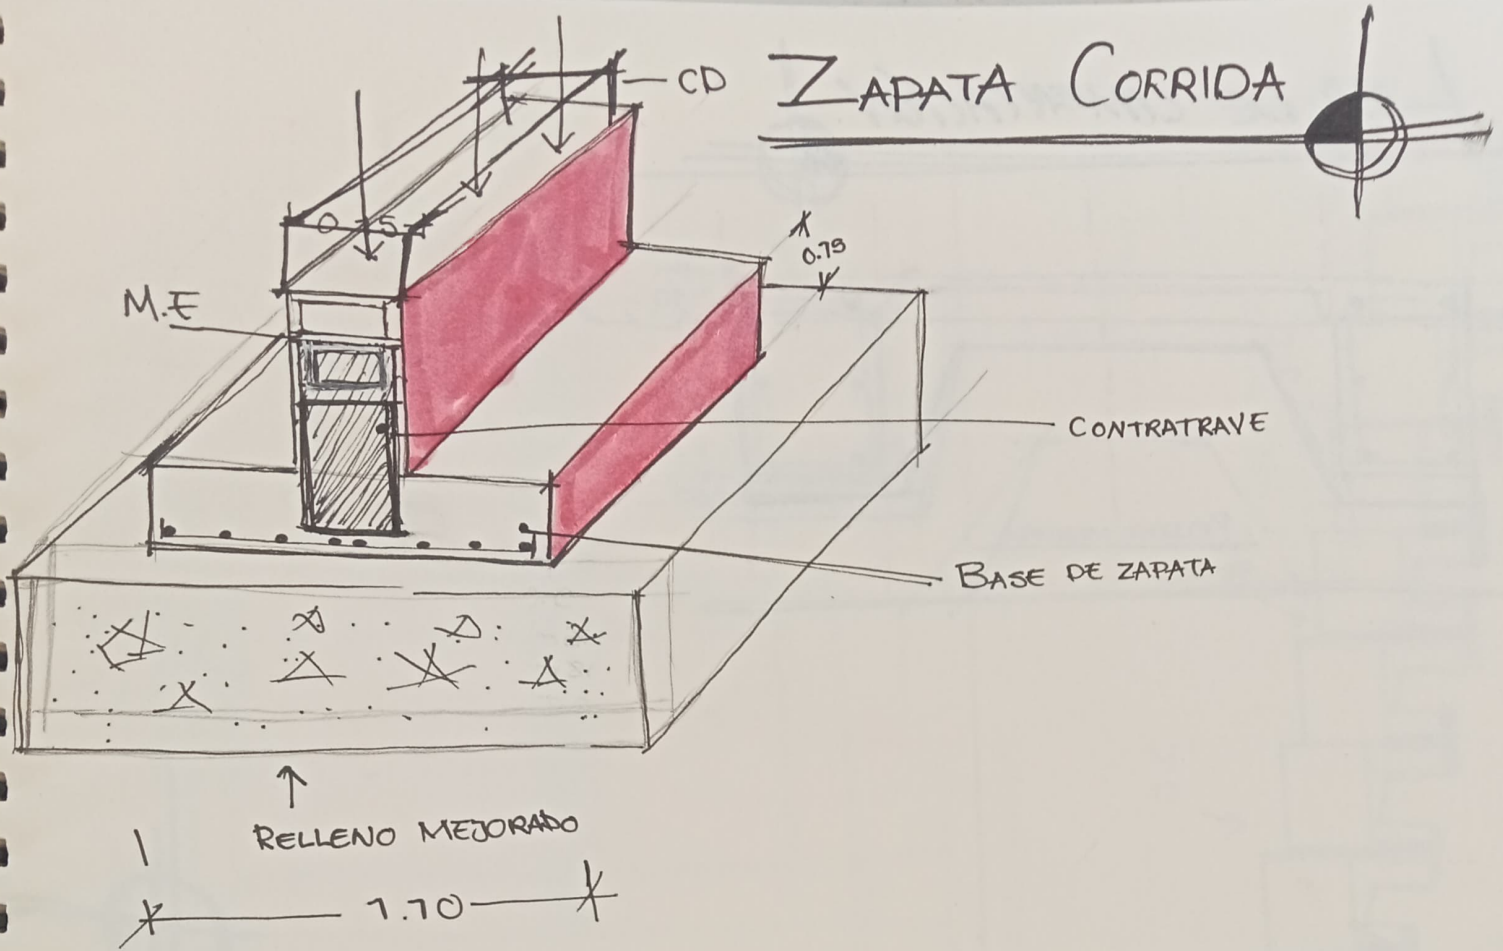 ZAPATA CORRIDA
CD
0.75
M.E
CONTRATRAVE
BASE DE ZAPATA
RELLENO MEJORADO
1.70